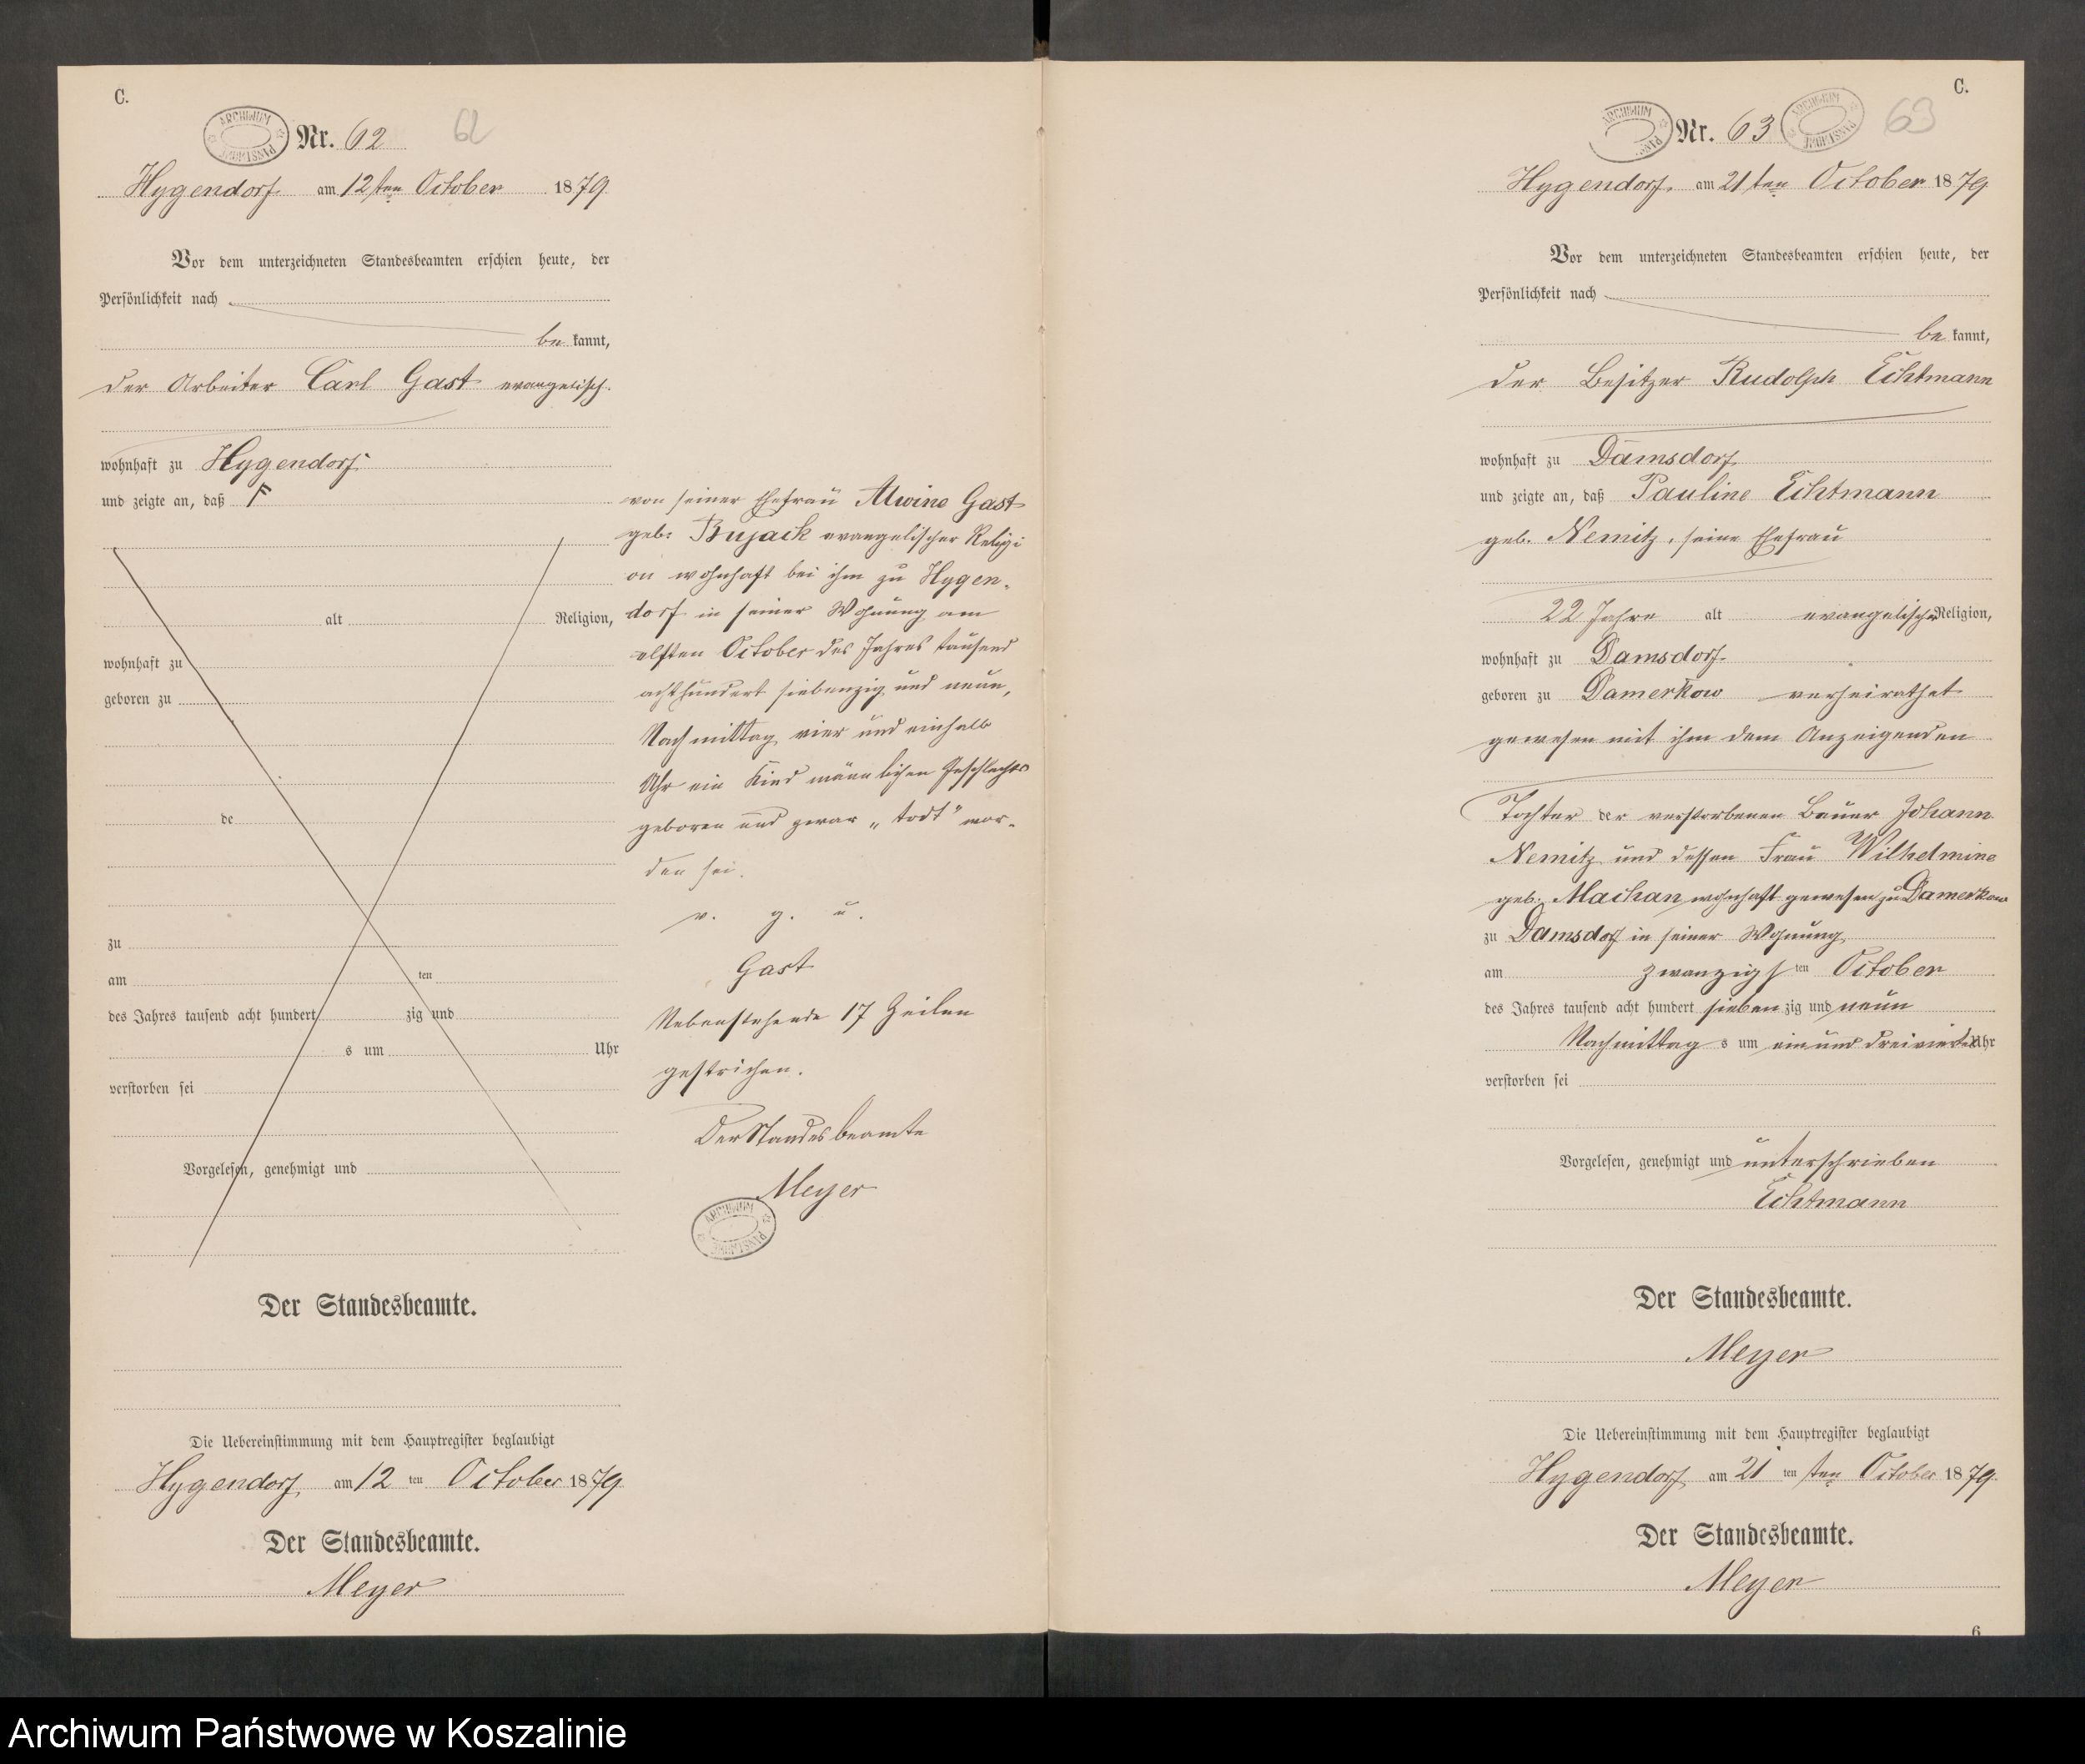 C.
ARCHIWUM PAŃSTWOWE
Nr. 62
62
Hygendorf am 12ten October 1879.
Vor dem unterzeichneten Standesbeamten erschien heute, der
Persönlichkeit nach
be kannt,
der Arbeiter Carl Gast evangelisch.
wohnhaft zu Hygendorf
und zeigte an, daß
alt Religion,
wohnhaft zu
geboren zu
de
zu
am ten
des Jahres tausend acht hundert zig und
s um Uhr
verstorben sei
Vorgelesen, genehmigt und
von seiner Ehefrau Alwine Gast
geb: Bujack evangelischer Religi
on wohnhaft bei ihm zu Hygen-
dorf in seiner Wohnung am
elften October des Jahres tausend
achthundert siebenzig und neun,
Nachmittag vier und einhalb
Uhr ein Kind männlichen Geschlechts
geboren und zwar „todt" wor-
den sei.
v. g. u.
Gast
Nebenstehende 17 Zeilen
gestrichen.
Der Standesbeamte
Meyer
ARCHIWUM PAŃSTWOWE
Der Standesbeamte.
Die Uebereinstimmung mit dem Hauptregister beglaubigt
Hygendorf, am 12 ten October 1879.
Der Standesbeamte.
Meyer
C.
ARCHIWUM PAŃS
Nr. 63
ARCHIWUM PAŃSTWOWE
63
Hygendorf, am 21ten October 1879.
Vor dem unterzeichneten Standesbeamten erschien heute, der
Persönlichkeit nach
be kannt,
der Besitzer Rudolph Echtmann
wohnhaft zu Damsdorf
und zeigte an, daß Pauline Echtmann
geb. Nemitz, seine Ehefrau
22 Jahre alt evangelischer Religion,
wohnhaft zu Damsdorf.
geboren zu Damerkow verheirathet
gewesen mit ihm dem Anzeigenden
Tochter der verstorbenen Bauer Johann
Nemitz und dessen Frau Wilhelmine
geb. Machan wohnhaft gewesen zu Damerkow
zu Damsdorf in seiner Wohnung
am zwanzigs ten October
des Jahres tausend acht hundert sieben zig und neun
Nachmittag s um ein und dreiviertel Uhr
verstorben sei
Vorgelesen, genehmigt und unterschrieben
Echtmann
Der Standesbeamte.
Meyer
Die Uebereinstimmung mit dem Hauptregister beglaubigt
Hygendorf, am 21 ten ten October 1879.
Der Standesbeamte.
Meyer
6
Archiwum Państwowe w Koszalinie